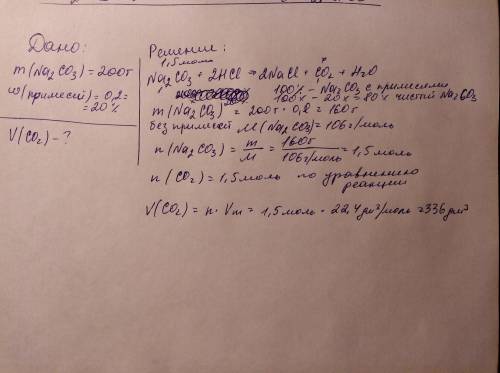 Дано:
m(Na2CO3)=200г
w(примесей)=0,2=
=20%
V(CO2)-?
Решение:
1,5моль
Na2CO3 + 2HCl → 2NaCl + CO2 + H2O
100% - Na2CO3 с примесями
100% - 20% = 80% чистый Na2CO3
m(Na2CO3) = 200г · 0,8 = 160г
без примесей M(Na2CO3)=106г/моль
n(Na2CO3) = m/M = 160г/106г/моль = 1,5моль
n(CO2) = 1,5моль по уравнению
реакции
V(CO2) = n · Vm = 1,5моль · 22,4дм³/моль =336дм³